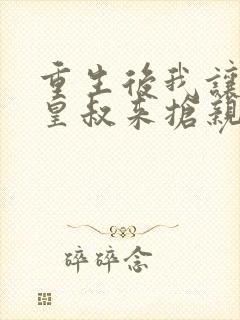 重生後我讓
皇叔來搶親
碎碎念